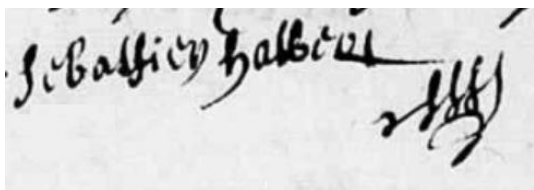 Sebathien halbert